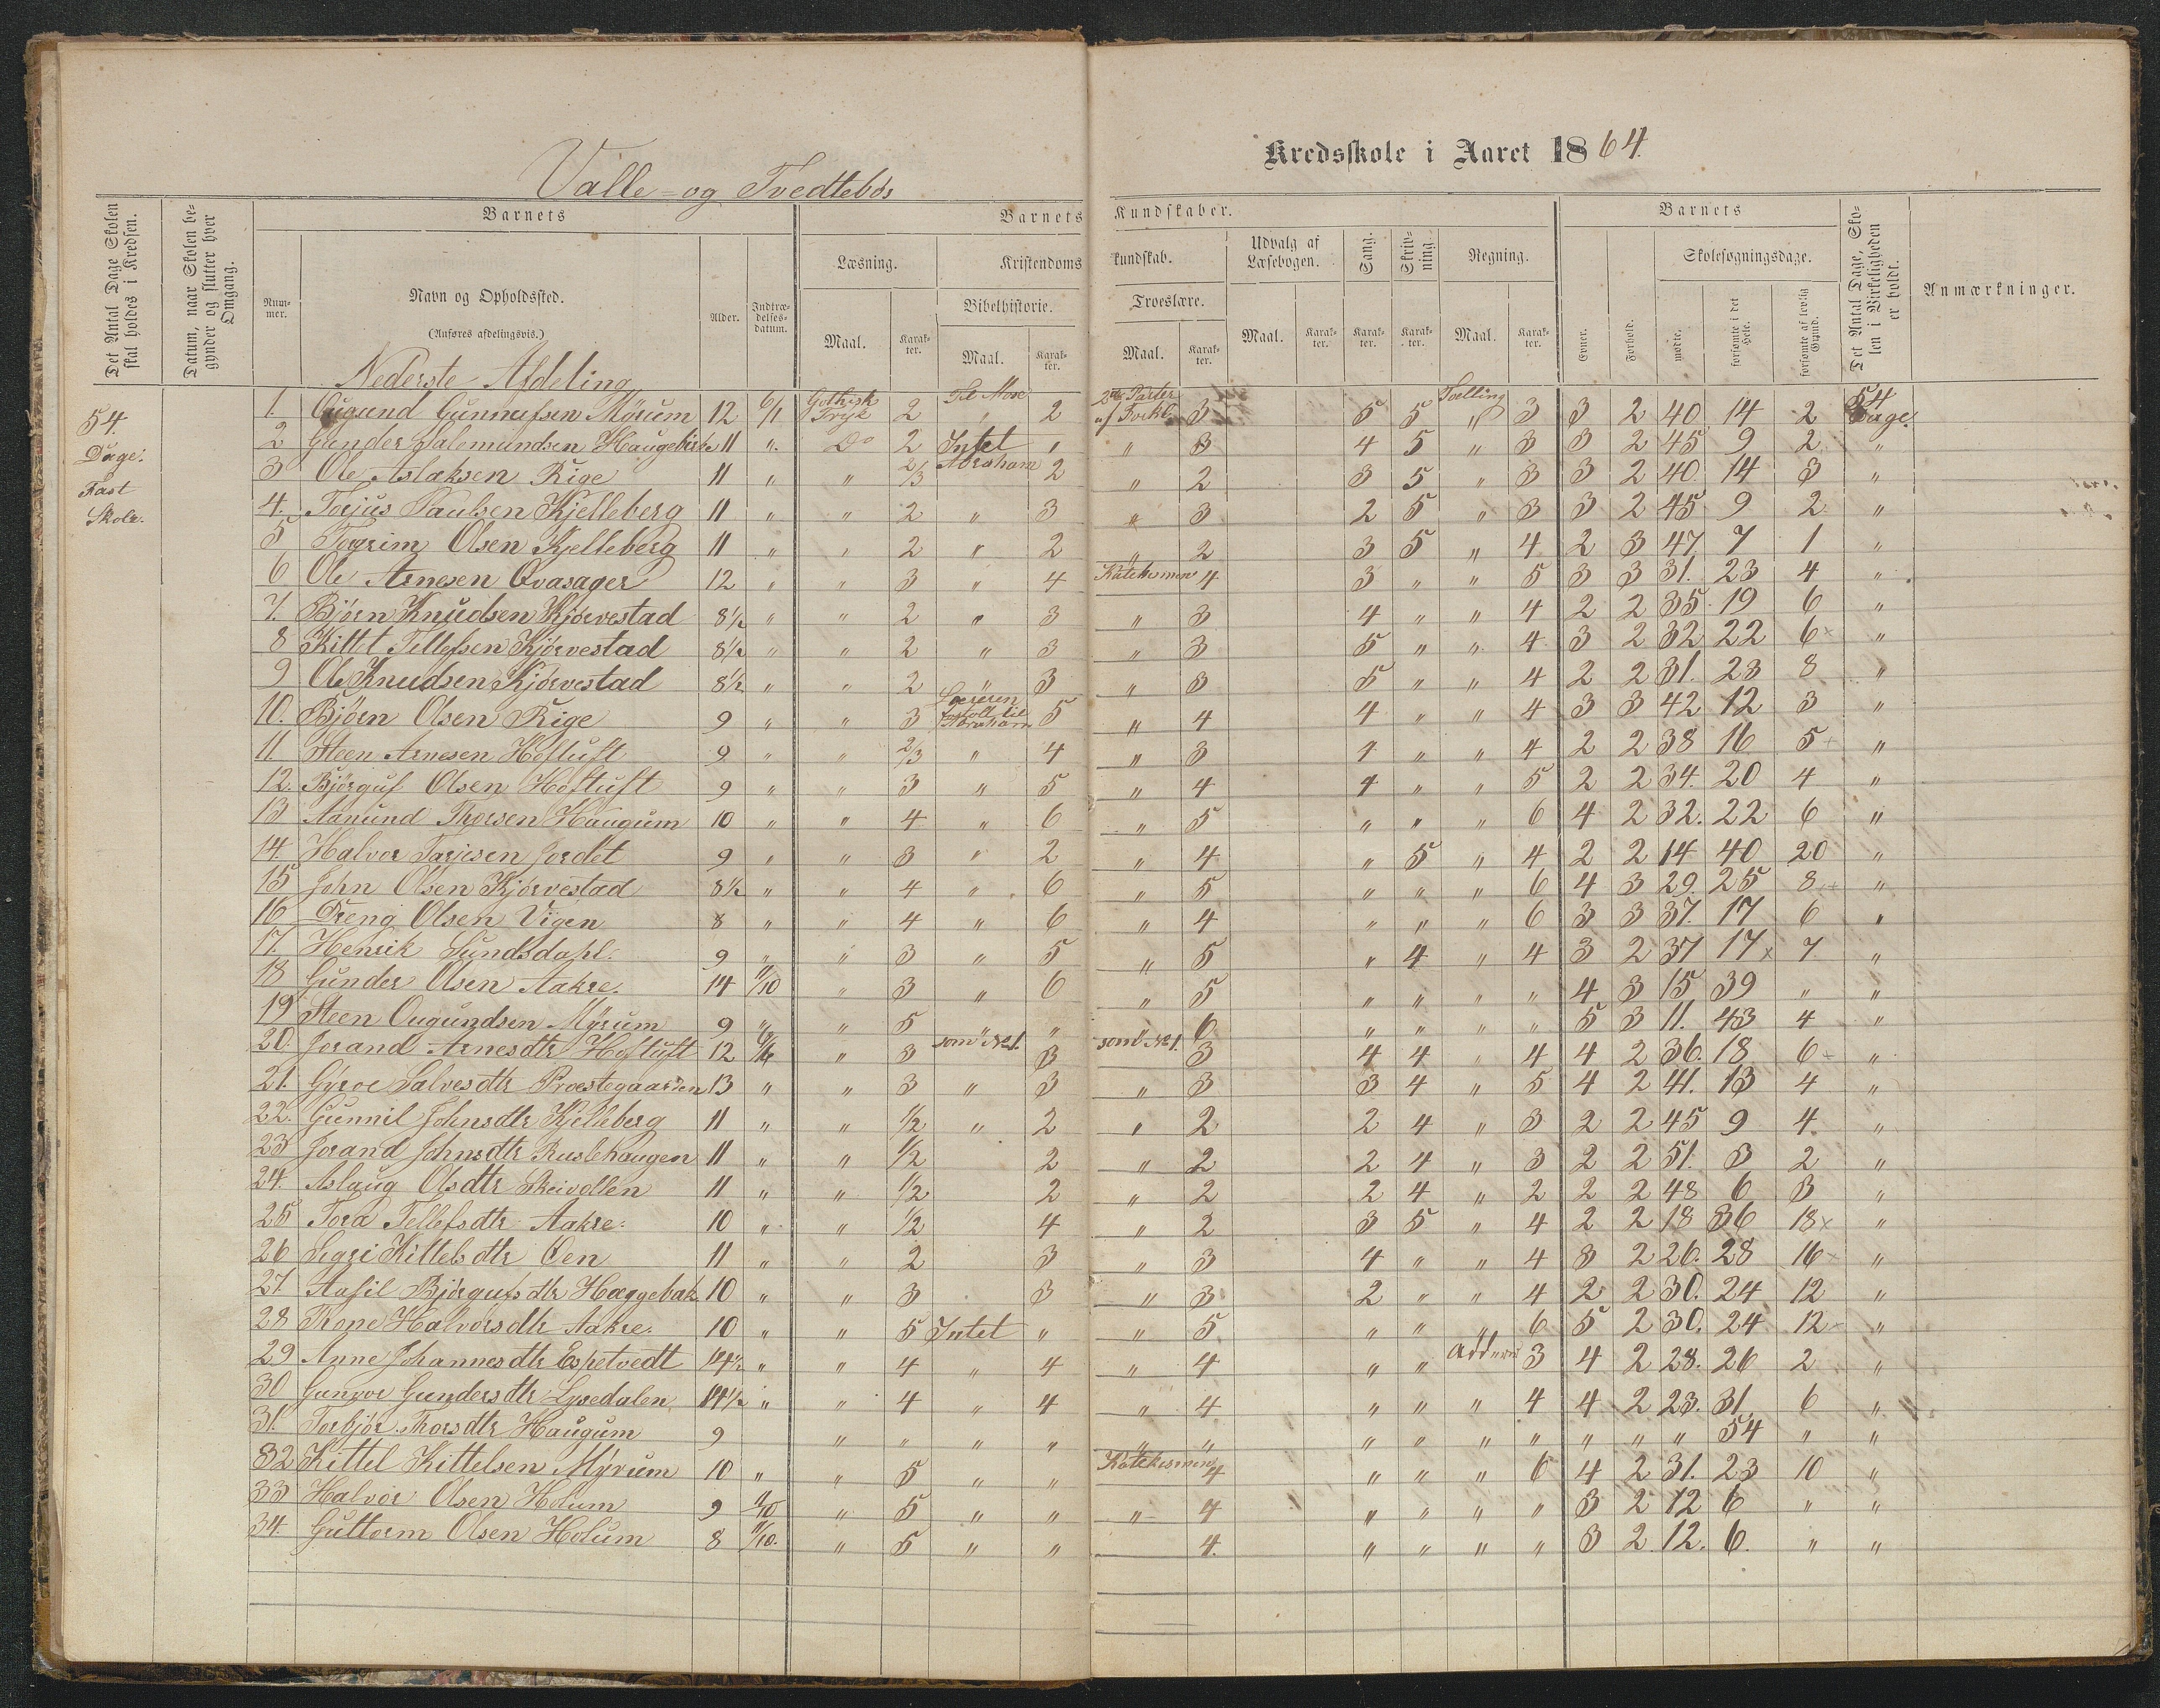 Valle- og Tvedtebøs Kredsskole i Aaret 1864.
Det Antal Dage Skolen skal holdes i Kredsen.
Datum, naar Skolen begynder og slutter hver Omgang.
Barnets
Nummer.
Navn og Opholdssted.
(Anføres afdelingsvis.)
Alder.
Indtrædelsesdatum.
Barnets Kundskaber.
Læsning. Kristendomskundskab. Udvalg af Læsebogen. Sang. Skrivning. Regning.
Bibelhistorie. Troeslære.
Maal. Karakter. Maal. Karakter. Maal. Karakter. Maal. Karakter. Karakter. Karakter. Maal. Karakter.
Barnets
Evner. Forhold. Skolesøgningsdage.
mødte. forsømte i det Hele. forsømte af lovlig Grund.
Det Antal Dage, Skolen i Virkeligheden er holdt.
Anmærkninger.
54. Dage. Fast Skole.
Nederste Afdeling
1. Ougund Gunnufsen Mÿrum 12 6/1 Gothisk Tryk 2 Til Mose 2 3 5 5 Tælling 3 3 2 40. 14 2 54 Dage.
2 Gunder Salemundsen 11 " Do 2 Intet " " 3 4 5 " 3 3 2 45 9 2 "
3 Ole Aslaksen Rige 11 " " 2/3 Abraham 2 " 2 3 5 " 3 3 2 40. 14 3 "
4. Torjus Paulsen Kjelleberg 11 " " 2 " 3 " 3 2 5 " 3 3 2 45 9 2 "
5 Torgrim Olsen Kjelleberg 11 " " 2 " 2 " 2 3 5 " 4 2 3 47 7 1 "
6 Ole Arnesen Qvasager 12 " " 3 " 4 Katekismen 4 3 " " 5 3 3 31. 23 4 "
7. Bjørn Knudsen Kjørvestad 8½ " " 2 " 3 " 3 4 " " 4 2 2 35. 19 6 "
8 Kittel Tellefsen Kjørvestad 8½ " " 2 " 3 " 3 5 " " 4 3 2 32 22 6 "
9 Ole Knudsen Kjørvestad 8½ " " 2 " 3 " 3 5 " " 4 2 2 31. 23 8 "
10. Bjørn Olsen Rige 9 " " 3 til Abraham 5 " 4 4 " " 4 3 3 42 12 3 "
11. Steen Arnesen Hoftuft 9 " " 2/3 " 4 " 3 4 " " 4 2 2 38 16 5 "
12. Bjørguf Olsen Hoftuft 9 " " 3 " 5 " 4 4 " " 5 2 2 34. 20 4 "
13 Aanund Thorsen Haugum 10 " " 4 " 6 " 5 " " " 6 4 2 32. 22 6 "
14. Halvor Tarjesen Jordet 9 " " 3 " 2 " 4 " 5 " 4 2 2 14 40 20 "
15 John Olsen Kjørvestad 8½ " " 4 " 6 " 5 " " " 6 4 3 29. 25 8 "
16 Dreng Olsen Vigen 8 " " 4 " 6 " 4 " " " 6 3 3 37. 17 6 "
17. Henrik Sundsdahl. 9 " " 3 " 5 " 5 " 4 " 4 3 2 37 17 7 "
18 Gunder Olsen Aakre. 14 11/10 " 3 " 6 " 5 " " " " 4 3 15 39 " "
19 Steen Ougundsen Mÿrum 9 " " 5 " " " 6 " " " " 5 3 11. 43 4 "
20. Jorand Arnesdtr Hoftuft 12 " 3 som No 1. 3 som No 1. 3 4 4 " 4 4 2 36. 18 6 "
21. Gÿroe Salvesdtr Præstegaarden 13 " " 3 " 3 " 3 3 4 " 5 4 2 41. 13 4 "
22. Gunnil Johnsdtr Kjelleberg 11 " " ½ " 2 " 2 2 4 " 3 2 2 45 9 4. "
23 Jorand Johnsdtr Ruslehaugen 11 " " ½ 2 " 2 2 4 " 3 2 2 51. 3 2 "
24. Aslaug Olsdtr 11 " " ½ 2 " 2 2 4 " 2 2 2 48 6 3 "
25 Tora Tellefsdtr Aakre. 10 " " ½ 4 " 2 3 5 " 4 2 2 18 36 18 "
26 Sigri Kittelsdtr Oen 11 " " 2 3 " 3 4 " " 4 3 2 26. 28 16 "
27. Aasil Bjørgufsdtr Hæggebak 10 " " 3 3 " 3 2 " " 4 2 2 30. 24 12 "
28 Rone Halvorsdtr Aakre. 10 " " 5 Intet " " 5 " " " 6 5 2 30. 24 12 "
29 Anne Johannesdtr Espetvedt 14½ " " 4 " 4 " 4 " " 3 4 2 28. 26 2 "
30 Gunvor Gundersdtr Lysedalen 14½ " " 4 " 4 " 4. " " " 4 4 2 23. 31. 6 "
31. Torbjør Thorsdtr Haugum 9 " " " " " " " " " " " " " 54 " "
32 Kittel Kittelsen Mÿrum 10 " " 5 " " Katekismen 4 " " " 6 4 2 31. 23 10 "
33 Halvor Olsen Holum 9 11/10 " 5 " " " 4 " " " " 3 2 12 6 " "
34. Guttorm Olsen Holum 8 11/10. " 5 " " 4. " " " " 3 2. 12. 6. " "